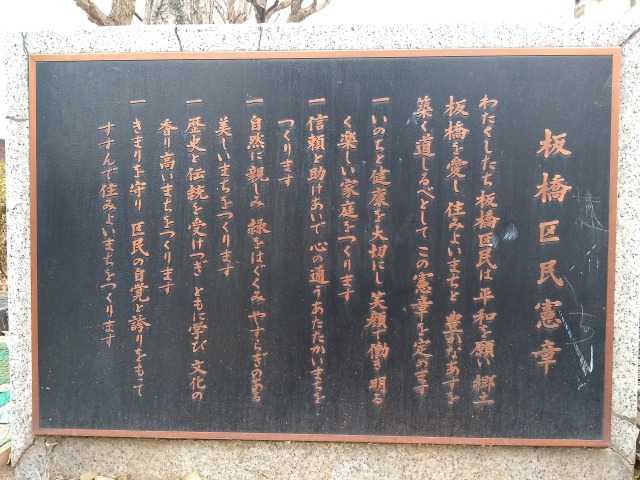 板橋区民憲章
わたくしたち板橋区民は 平和を願い 郷土
板橋を愛し 住みよいまちと 豊かなあすを
築く道しるべとして この憲章を定めます
一 いのちと健康を大切にし 笑顔で働き 明る
く楽しい家庭をつくります
一 信頼と助けあいで 心の通うあたたかいまちを
つくります
一 自然に親しみ 緑をはぐくみ やすらぎのある
美しいまちをつくります
一 歴史と伝統を受けつぎ ともに学び 文化の
香り高いまちをつくります
一 きまりを守り 区民の自覚と誇りをもって
すすんで住みよいまちをつくります